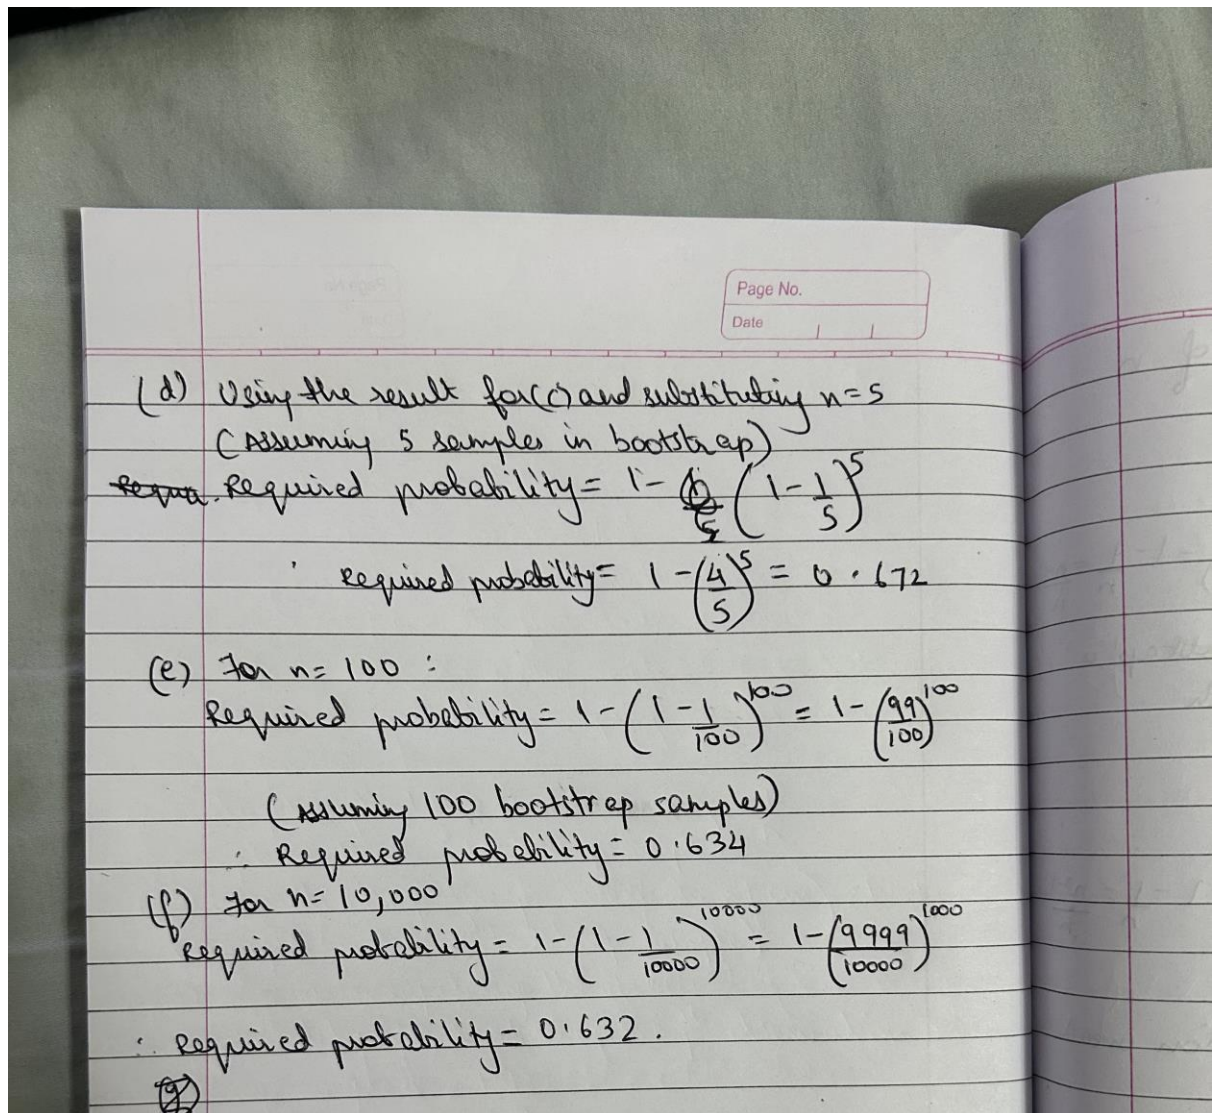 Page No.
Date
(d) Using the result for (c) and substituting n=5
(Assuming 5 samples in bootstrap)
Required probability = 1 - (1 - 1/5)^5
Required probability = 1 - (4/5)^5 = 0.672
(e) For n = 100 :
Required probability = 1 - (1 - 1/100)^100 = 1 - (99/100)^100
(Assuming 100 bootstrap samples)
∴ Required probability = 0.634
(f) For n = 10,000
Required probability = 1 - (1 - 1/10000)^10000 = 1 - (9999/10000)^1000
∴ Required probability = 0.632.
(g)